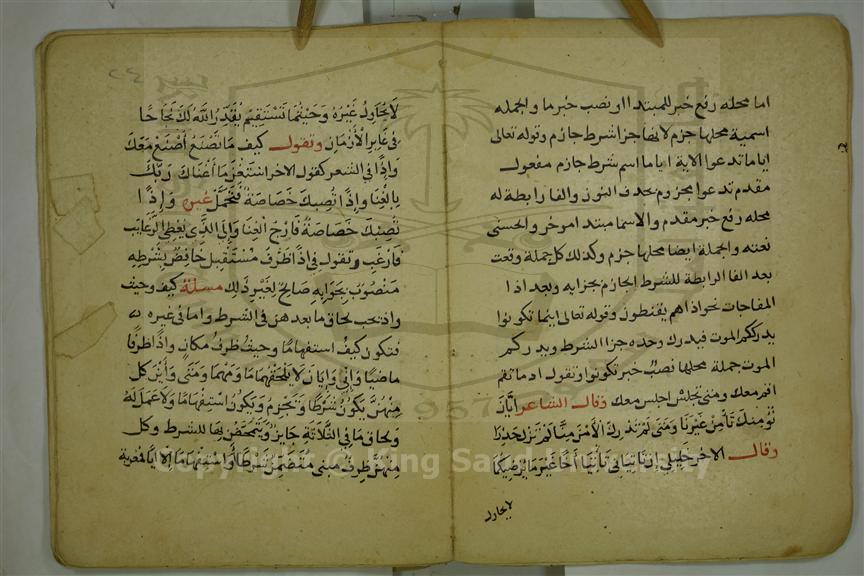 اما محله رفع خبر للمبتدا او نصب خبر ما والجمله
اسمية محلها جزم لانها جزا شرط جازم وقوله تعالى
اياما تدعوا الاية اياما اسم شرط جازم مفعول
مقدم تدعوا مجزوم بحذف النون والفا رابطة له
محله رفع خبر مقدم والاسما مبتدا موخر والحسنى
نعته والجملة ايضا محلها جزم وكذلك كل جملة وقعت
بعد الفا الرابطة للشرط الجازم بجزايه وبعد اذا
المفاجات نحو اذا هم يقنطون وقوله تعالى اينما تكونوا
يدرككم الموت فيدرك وحده جزا الشرط ويدرككم
الموت جملة محلها نصب خبر تكونوا وتقول اذ ما تقم
اقم معك ومتى تجلس اجلس معك وقال الشاعر ايان
نؤمنك تأمن غيرنا ومتى لم تدرك الأمن منا لم تزل حذرا
وقال الاخر خليلي إن تاتياني تأتيا أخا غير ما يرضيكما
لا يحاول
٢
٢٤
لا يُحاوِلُ غيره وحيثما تستقيم يقدر الله لك نجاحا
في غابر الأزمان وتقول كيف ما تصنع أصنع معك
وإذا في الشعر كقول الاخر استغن ما أغناك ربك
بالغنا وإذا تصبك خصاصة فتجمل غيره وإذا
تصبك خصاصة فارج الغنا وإلى الذي يعطي الرغايب
فارغب وتقول في إذا ظرف مستقبل خافض بشرطه
منصوب بجوابه صالح لغير ذلك مسئلة كيف وحيث
واذ تجب لحاق ما بعد هن في الشرط واما في غيره
فتكون كيف استفهاما وحيث ظرف مكان واذ ظرفا
ماضيا وأنى وإيان لا يلحقهما ما ومهما ومتى وأين كل
منهن يكون شرطا وتجزم ويكون استفهاما ولا عمل له
ولحاق ما في الثلاثة جايز ويتمحض بها للشرط وكل
منهن ظرف مبنى متضمن شرطا أو استفهاما إلا أيا فمعربة
Copyright © King Saud University
1957